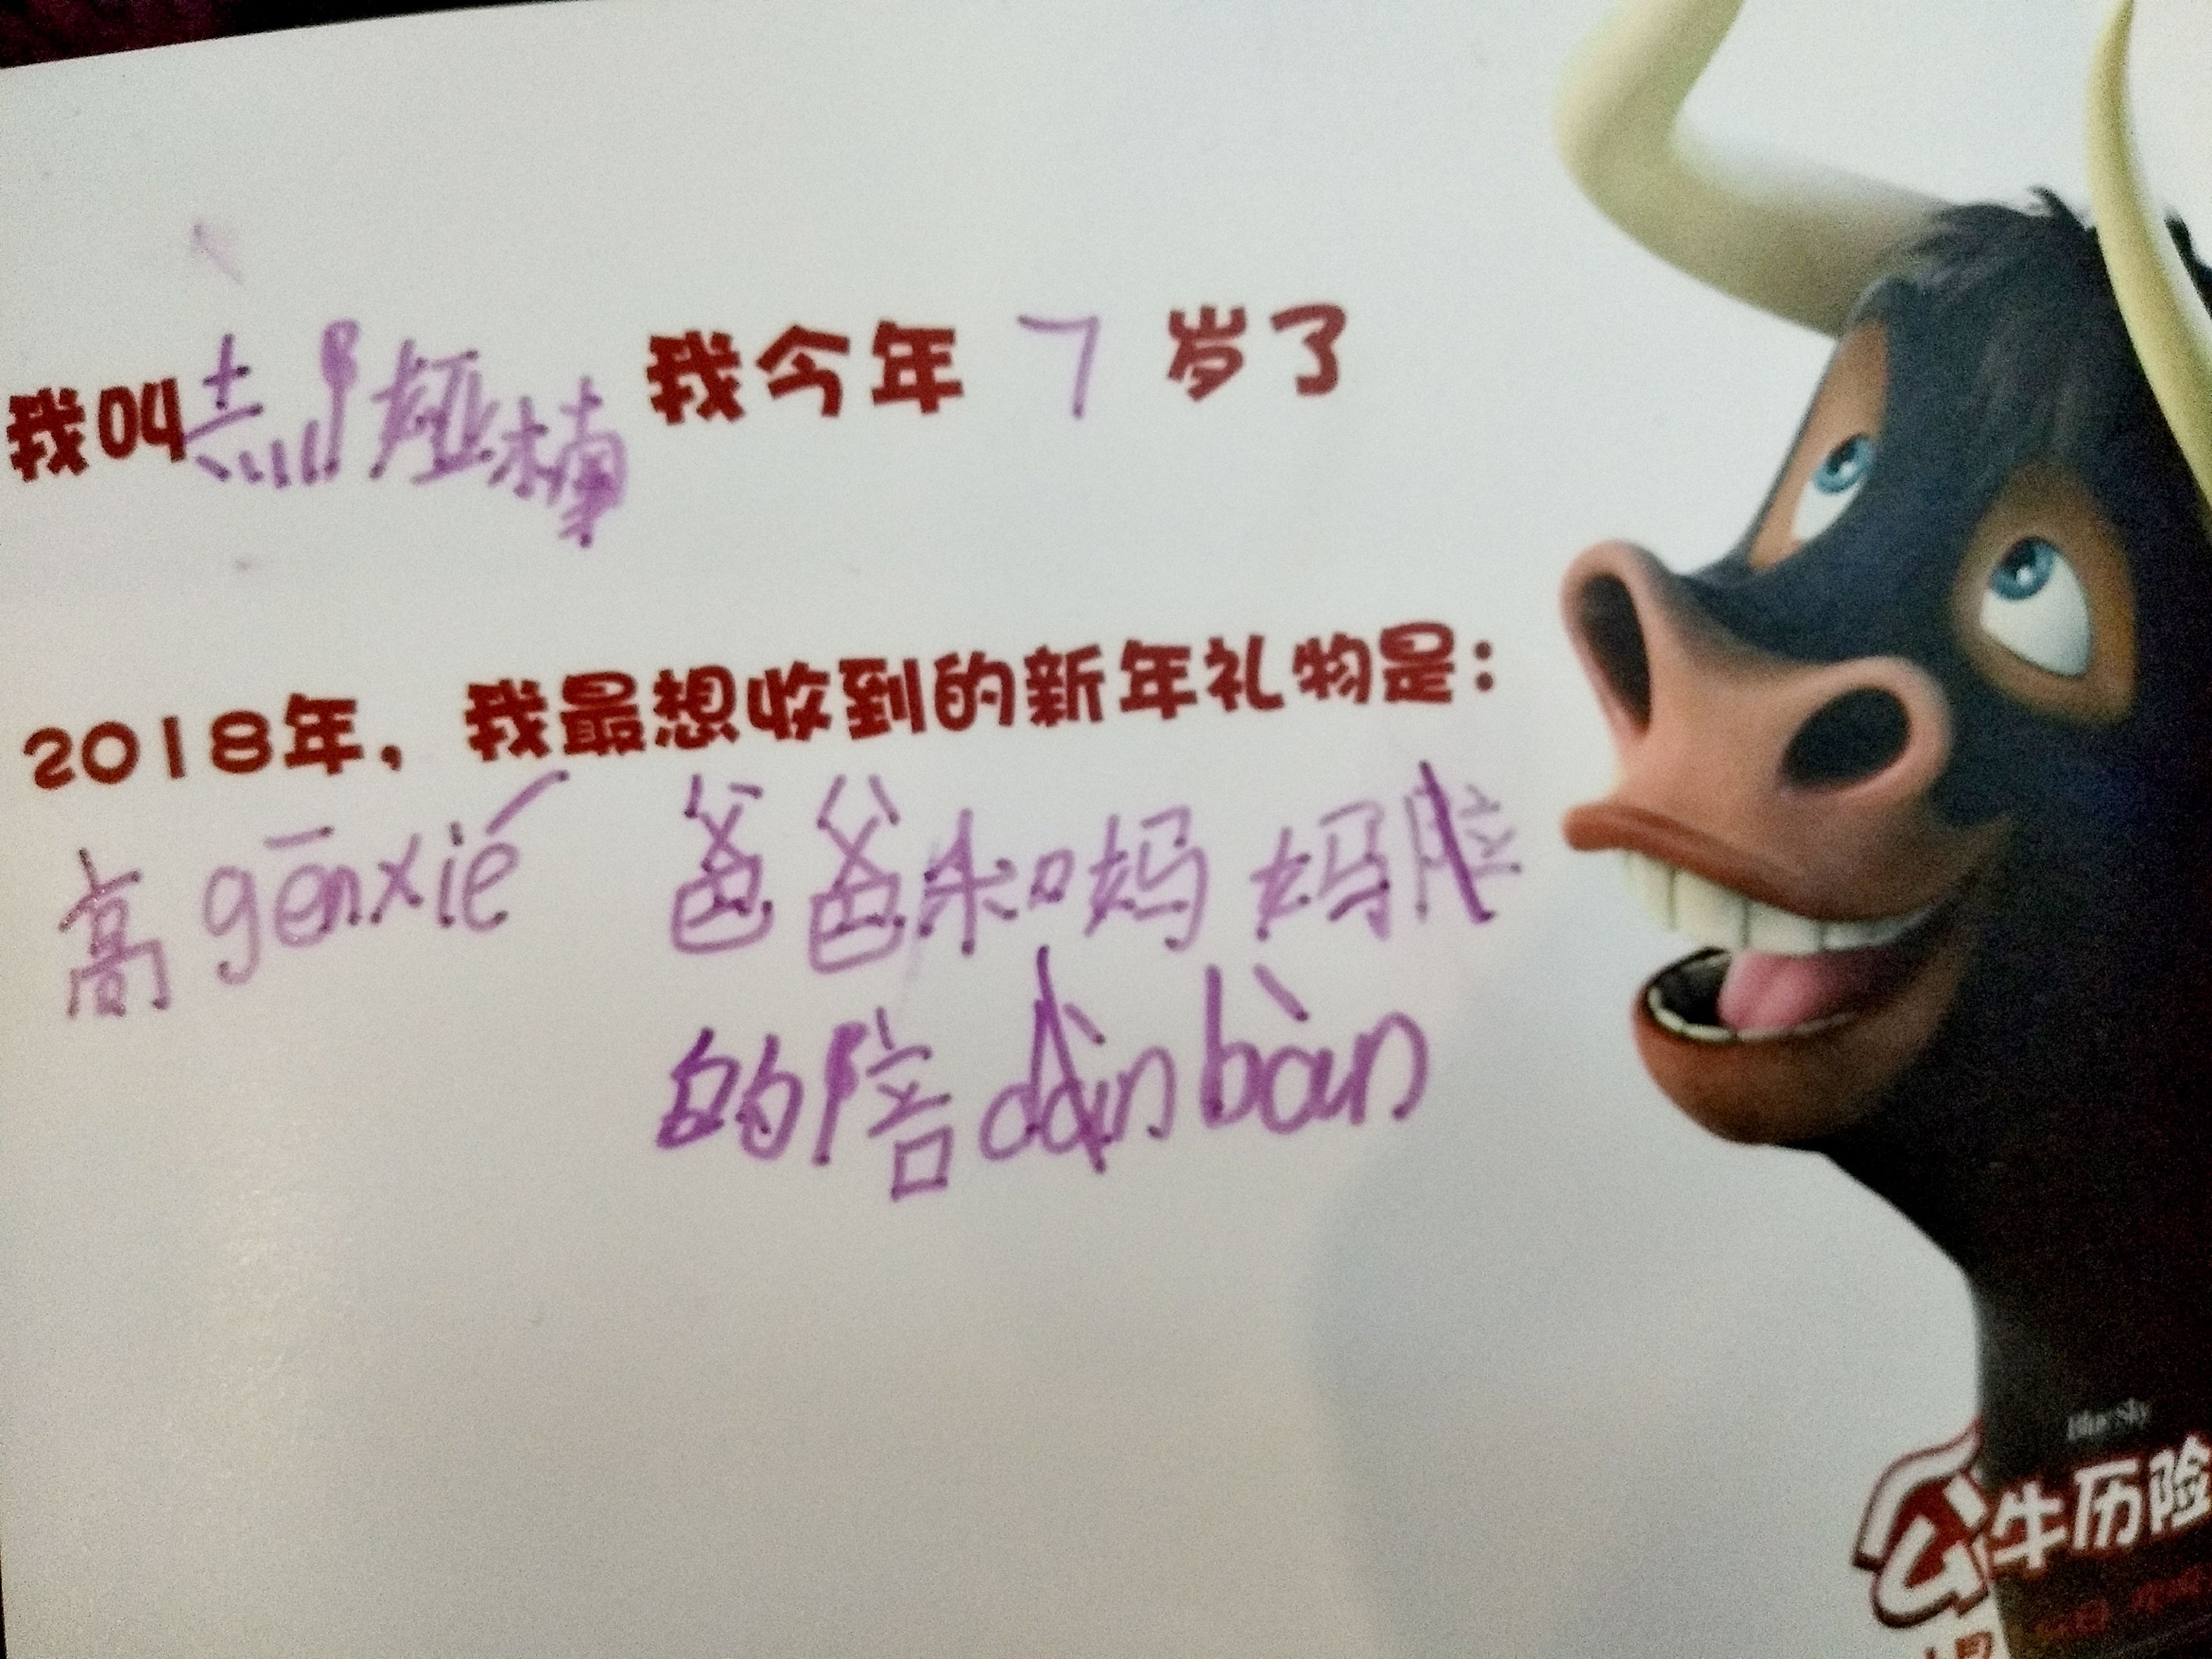 我叫 郝娅楠 我今年 7 岁了
2018年，我最想收到的新年礼物是：
高gēnxié 爸爸和妈妈
的陪 bàn
BlueSky
公牛历险